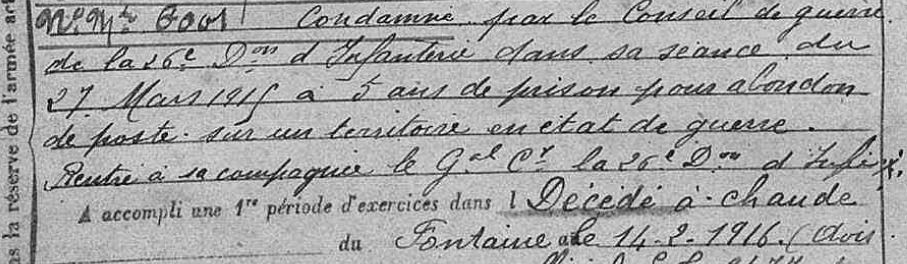 Nº Mle 6001 Condamné par le Conseil de guerre
de la 26e Don d'Infanterie dans sa séance du
27 Mars 1915 à 5 ans de prison pour abandon
de poste sur un territoire en état de guerre.
Rentré à sa compagnie le Gal Ct la 26e Don d'Infie
A accompli une 1re période d'exercices dans l Décédé à chaude
du Fontaine le 14-2-1916. (avis